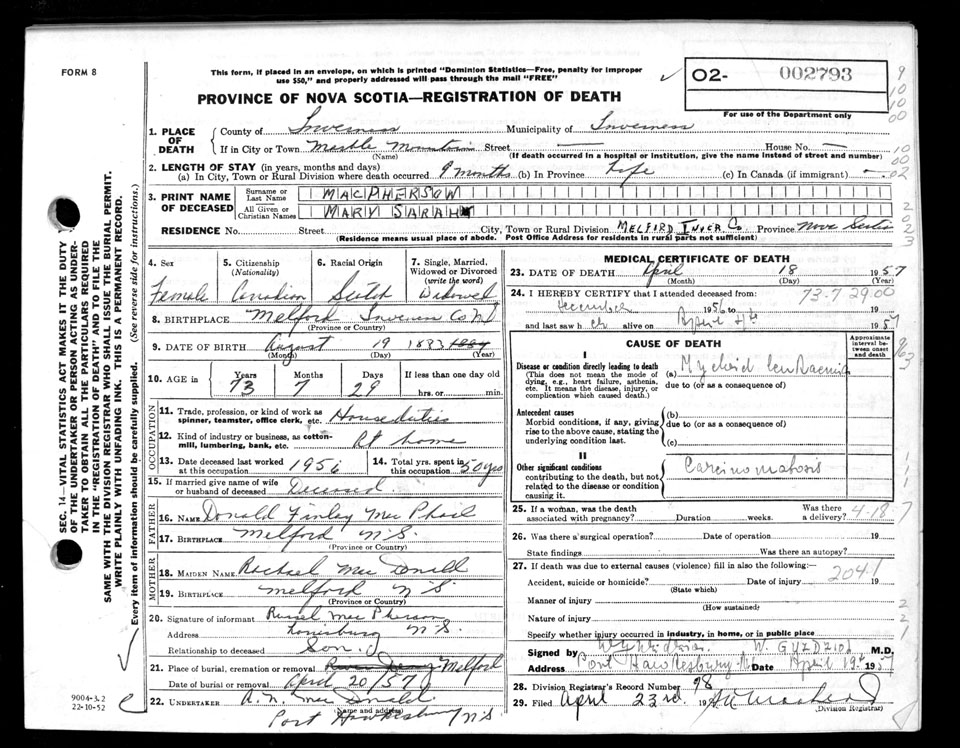 FORM 8
This form, if placed in an envelope, on which is printed "Dominion Statistics—Free, penalty for improper
use $50," and properly addressed will pass through the mail "FREE"
O2- 002793
For use of the Department only
PROVINCE OF NOVA SCOTIA—REGISTRATION OF DEATH
1. PLACE OF DEATH
County of Inverness Municipality of Inverness
If in City or Town Mountain Street — House No. —
(Name) (If death occurred in a hospital or institution, give the name instead of street and number)
2. LENGTH OF STAY (in years, months and days)
(a) In City, Town or Rural Division where death occurred 9 months (b) In Province Life (c) In Canada (if immigrant) —
3. PRINT NAME OF DECEASED
Surname or Last Name MACPHERSON
All Given or Christian Names MARY SARAH
RESIDENCE No. Street City, Town or Rural Division MELFORD INVER. CO Province Nova Scotia
(Residence means usual place of abode. Post Office Address for residents in rural parts not sufficient)
4. Sex Female
5. Citizenship (Nationality) Canadian
6. Racial Origin Scotch
7. Single, Married, Widowed or Divorced (write the word) Widowed
8. BIRTHPLACE Melford Inverness Co NS
(Province or Country)
9. DATE OF BIRTH August 19 1883
(Month) (Day) (Year)
10. AGE in Years Months Days If less than one day old
73 7 29 hrs. or min.
OCCUPATION
11. Trade, profession, or kind of work as spinner, teamster, office clerk, etc. House duties
12. Kind of industry or business, as cotton-mill, lumbering, bank, etc. At home
13. Date deceased last worked at this occupation 1956
14. Total yrs. spent in this occupation 50 yrs
15. If married give name of wife or husband of deceased Deceased
FATHER
16. NAME Donald Finlay MacPhail
17. BIRTHPLACE Melford N.S.
(Province or Country)
MOTHER
18. MAIDEN NAME Rachael Mac
19. BIRTHPLACE Melford N S
(Province or Country)
20. Signature of informant Mac Pherson
Address N.S.
Relationship to deceased Son
21. Place of burial, cremation or removal Melford
Date of burial or removal April 20/57
22. UNDERTAKER A. Mac
(Name and address)
Port Hawkesbury N S
9004-3.2
22-10-52
SEC. 14—VITAL STATISTICS ACT MAKES IT THE DUTY
OF THE UNDERTAKER OR PERSON ACTING AS UNDER-
TAKER TO OBTAIN ALL THE PARTICULARS REQUIRED
IN THE "REGISTRATION OF DEATH" AND TO FILE THE
SAME WITH THE DIVISION REGISTRAR WHO SHALL ISSUE THE BURIAL PERMIT.
WRITE PLAINLY WITH UNFADING INK. THIS IS A PERMANENT RECORD.
Every item of information should be carefully supplied. (See reverse side for instructions.)
MEDICAL CERTIFICATE OF DEATH
23. DATE OF DEATH April 18 1957
(Month) (Day) (Year)
24. I HEREBY CERTIFY that I attended deceased from: 73-7 29.00
December 1956 to 19
and last saw her alive on April 1957
CAUSE OF DEATH
Approximate interval between onset and death
I
Disease or condition directly leading to death (a) Myeloid leukaemia
(This does not mean the mode of dying, e.g., heart failure, asthenia, etc. It means the disease, injury, or complication which caused death.)
due to (or as a consequence of)
Antecedent causes (b)
Morbid conditions, if any, giving rise to the above cause, stating the underlying condition last.
due to (or as a consequence of)
(c)
II
Other significant conditions Carcinomatosis
contributing to the death, but not related to the disease or condition causing it.
25. If a woman, was the death associated with pregnancy? Duration weeks. Was there a delivery? 4-18-7
26. Was there a surgical operation? Date of operation 19
State findings Was there an autopsy?
27. If death was due to external causes (violence) fill in also the following:—
204.1
Accident, suicide or homicide? Date of injury 19
(State which)
Manner of injury
(How sustained)
Nature of injury
Specify whether injury occurred in industry, in home, or in public place
Signed by W. M.D.
Address Port Hawkesbury Date April 19th 1957
28. Division Registrar's Record Number 98
29. Filed April 23rd 19
(Division Registrar)